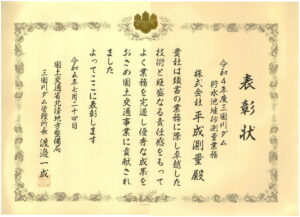 表彰状
令和4年度三国川ダム
貯水池堆砂測量業務
株式会社 平成測量 殿
貴社は頭書の業務に際し卓越した
技術と旺盛なる責任感をもって
よく業務を完遂し優秀な成果を
おさめ国土交通事業に貢献され
ました
よってここに表彰します
令和五年七月二十四日
国土交通省北陸地方整備局
三国川ダム管理所長 渡邉一成